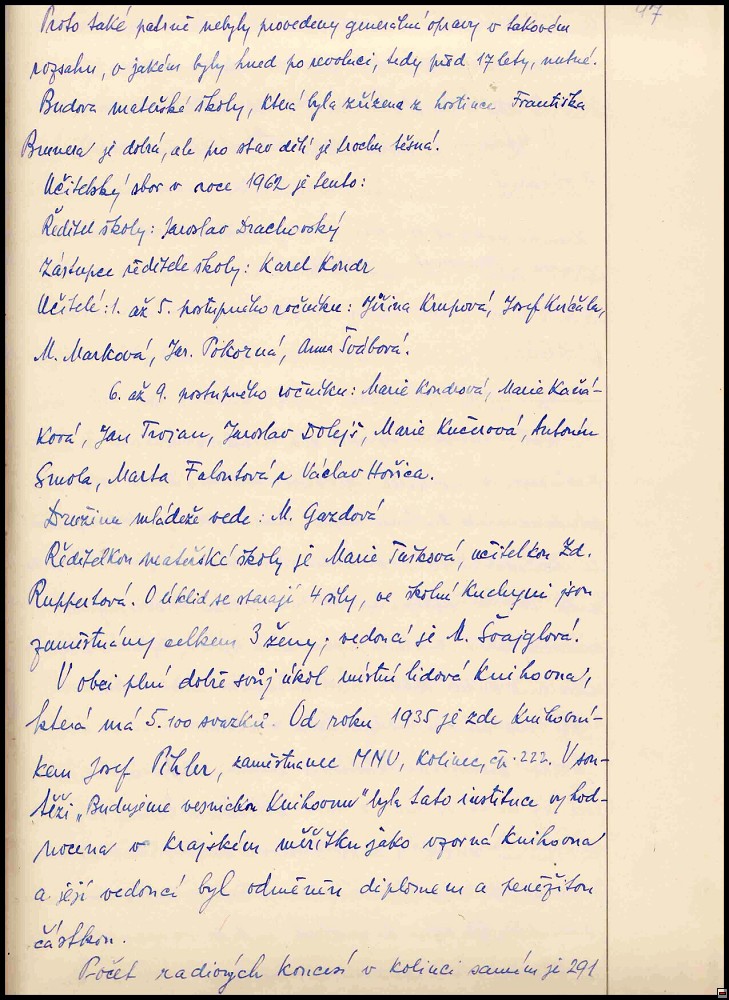 47
Proto také patrně nebyly provedeny generální opravy v takovém
rozsahu, v jakém byly hned po revoluci, tedy před 17 lety, nutné.
Budova mateřské školy, která byla zřízena z hostince Františka
Brunera je dobrá, ale pro stav dětí je trochu těsná.
Učitelský sbor v roce 1962 je tento:
Ředitel školy: Jaroslav Drachovský
Zástupce ředitele školy: Karel Kondr
Učitelé: 1. až 5. postupného ročníku: Jiřina Krupová, Josef
M. Marková, Jar. Pokorná, Anna Švábová.
6. až 9. postupného ročníku: Marie Kondrová, Marie
ková, Jan Trojan, Jaroslav Dolejš, Marie Kučerová, Antonín
Smola, Marta a Václav Hořica.
Družinu mládeže vede: M. Gazdová
Ředitelkou mateřské školy je Marie učitelkou Zd.
Ruppertová. O úklid se starají 4 síly, ve školní kuchyni jsou
zaměstnány celkem 3 ženy; vedoucí je M. Švajglová.
V obci plní dobře svůj úkol místní lidová knihovna,
která má 5.100 svazků. Od roku 1935 je zde knihovní-
kem Josef Pihler, zaměstnanec MNV, Kolinec, čp. 222. V sou-
těži „Budujeme vesnickou knihovnu" byla tato instituce vyhod-
nocena v krajském měřítku jako vzorná knihovna
a její vedoucí byl odměněn diplomem a peněžitou
částkou.
Počet radiových koncesí v Kolinci samém je 291